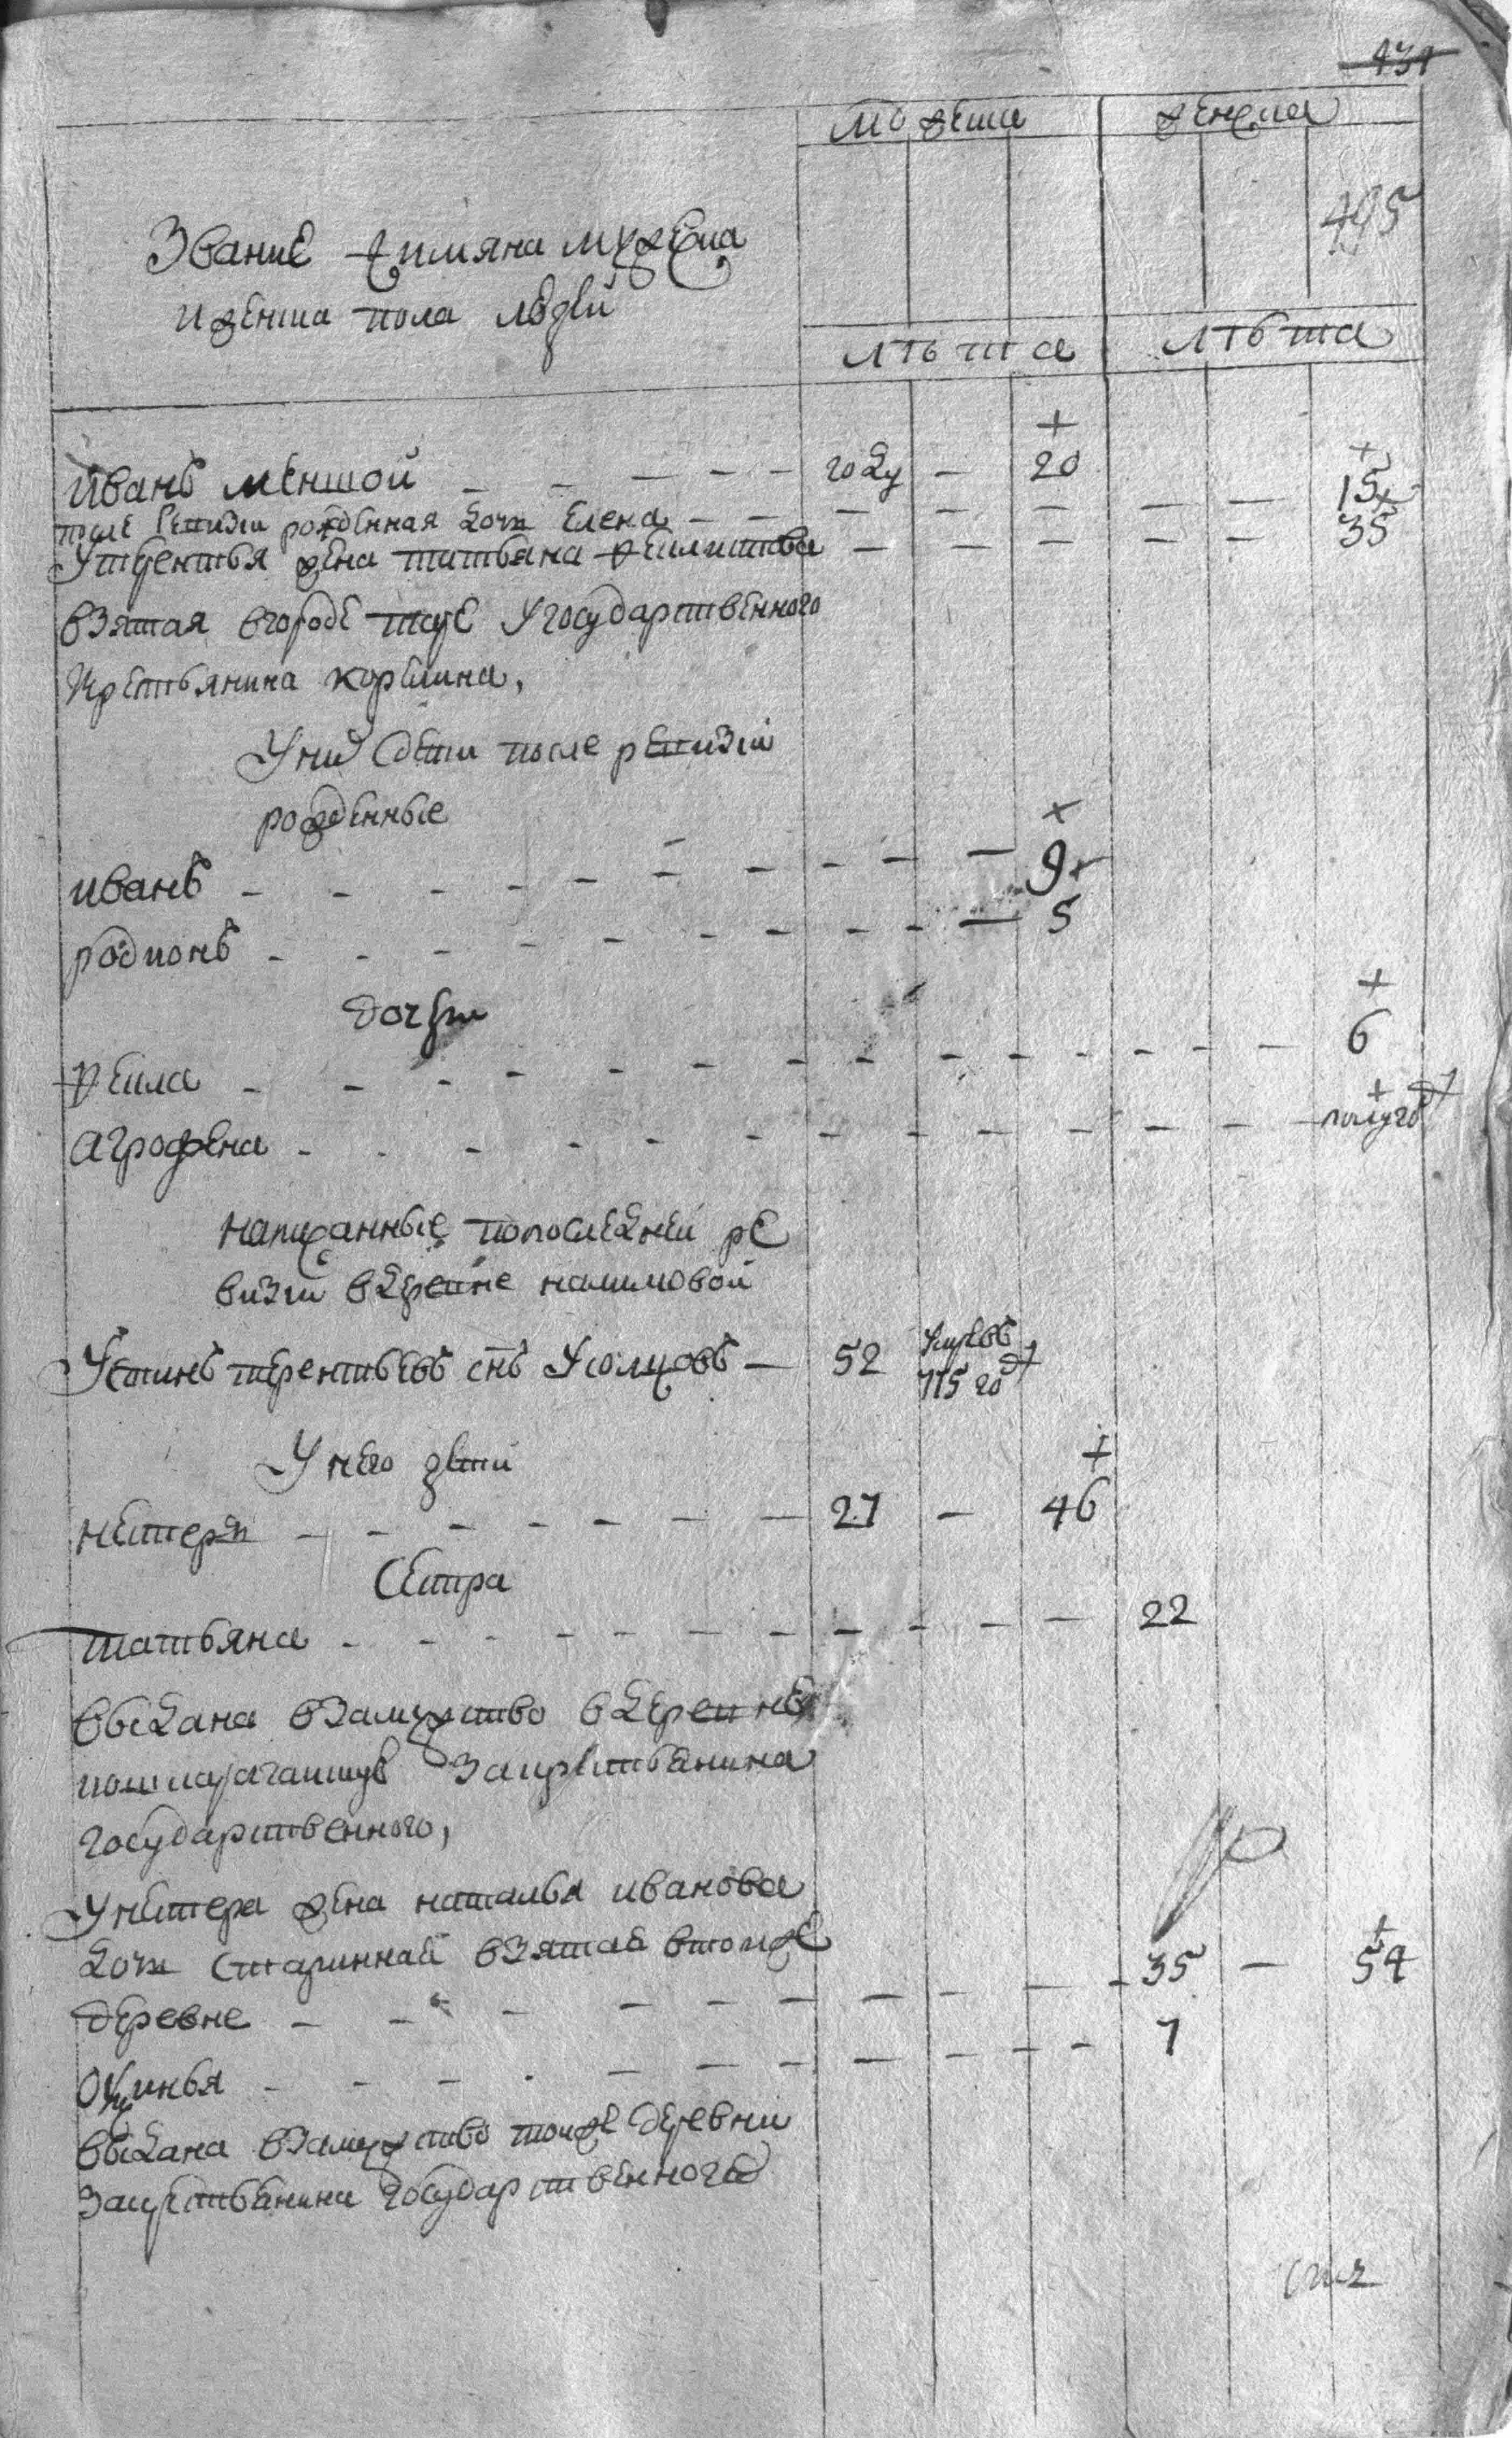 431
мужеска женска
495
Звание и имяна мужеска
и женска пола людей
лѣта лѣта
Иванъ меншой году 20
после ревизiи рожденная дочь Елена 15
У терентья жена татьяна 35
взятая вгороде таре У государственного
крестьянина корелина,
У них дети после ревизiи
рожденные
иванъ 9
родионъ 5
дочери
фекла 6
агрофена полугод
написанные попоследней ре
визiи вдеревне
Устинъ терентьевъ снъ Усолцовъ 52 умре въ 775 год
У него дети
нестеръ 27 46
Сестра
татьяна 22
выдана взамужство вдеревню
закрестьянина
государственного,
У нестера жена наталья иванова
дочь старинная взятая втойже
деревне 35 54
Окинья 7
выдана взамужство тойже деревни
закрестьянина государственного